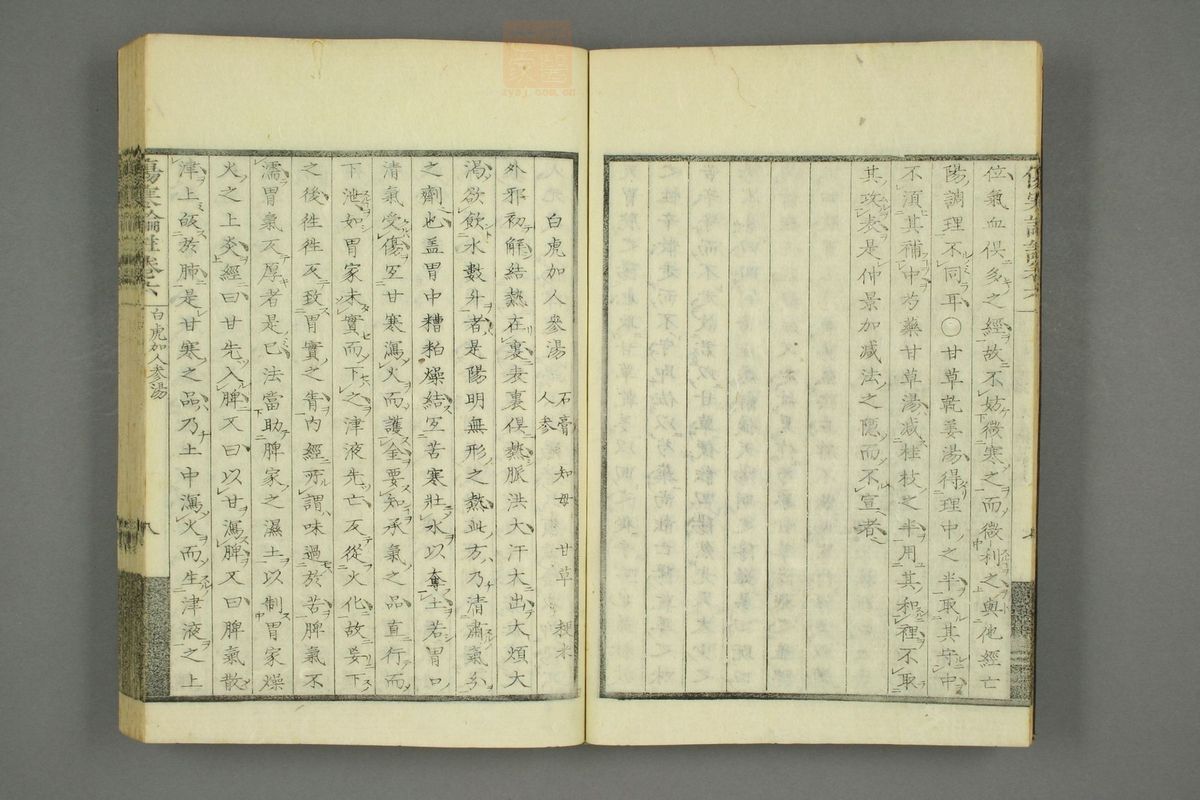 位氣血俱多之經故不妨微寒之而微利之與他經亡
陽調理不同耳〇甘草乾姜湯得理中之半取其守中
不須其補中芍藥甘草湯减桂枝之半用其和裡不取
其攻表是仲景加减法之隠而不宣者
白虎加人參湯 石膏 知母 甘草 粳米
人參
外邪初解結熱在裏表裏俱熱脈洪大汗大出大煩大
渴欲飲水數升者是陽明無形之熱此方乃清肅氣分
之劑也盖胃中糟粕燥結宐苦寒壯水以奪土若胃口
清氣受傷宐甘寒瀉火而護金要知承氣之品直行而
下泄如胃家未實而下之津液先亡反從火化故妄下
之後徃徃反致胃實之眚内經所謂味過於苦脾氣不
濡胃氣反厚者是已法當助脾家之濕土以制胃家燥
火之上炎經曰甘先入脾又曰以甘瀉脾又曰脾氣散
津上皈於肺是甘寒之品乃土中瀉火而生津液之上
傷寒論註卷六
白虎加人參湯
八